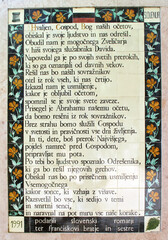 Hvaljen, Gospod, Bog naših očetov,
obiskal je svoje ljudstvo in nas odrešil.
Obudil nam je mogočnega Zveličarja
v hiši svojega služabnika Davida.
Napovedal ga je po svojih svetih prerokih,
ki so ga oznanjali od davnih vekov.
Rešil nas bo naših sovražnikov
otel iz rok vseh, ki nas črtijo.
Izkazal nam je usmiljenje,
kakor je obljubil očetom,
spomnil se je svoje svete zaveze.
Prisegel je Abrahamu našemu očetu,
da bomo rešeni iz rok sovražnikov.
Brez strahu bomo služili Gospodu
v svetosti in pravičnosti vse dni življenja.
In ti, dete, boš prerok Najvišjega,
pojdeš namreč pred Gospodom,
pripravljat mu pota.
Po tebi bo ljudstvo spoznalo Odrešenika,
ki ga bo rešil njegovih grehov.
Obiskal nas bo po prisrčnem usmiljenju
Vsemogočnega
kakor sonce, ki vzhaja z višave.
Razsvetlil bo vse, ki sedijo v temi
in smrtni senci,
in naravnal na pot miru vse naše korake.
1991
podarili slovenski romarji
ter frančiškovi bratje in sestre